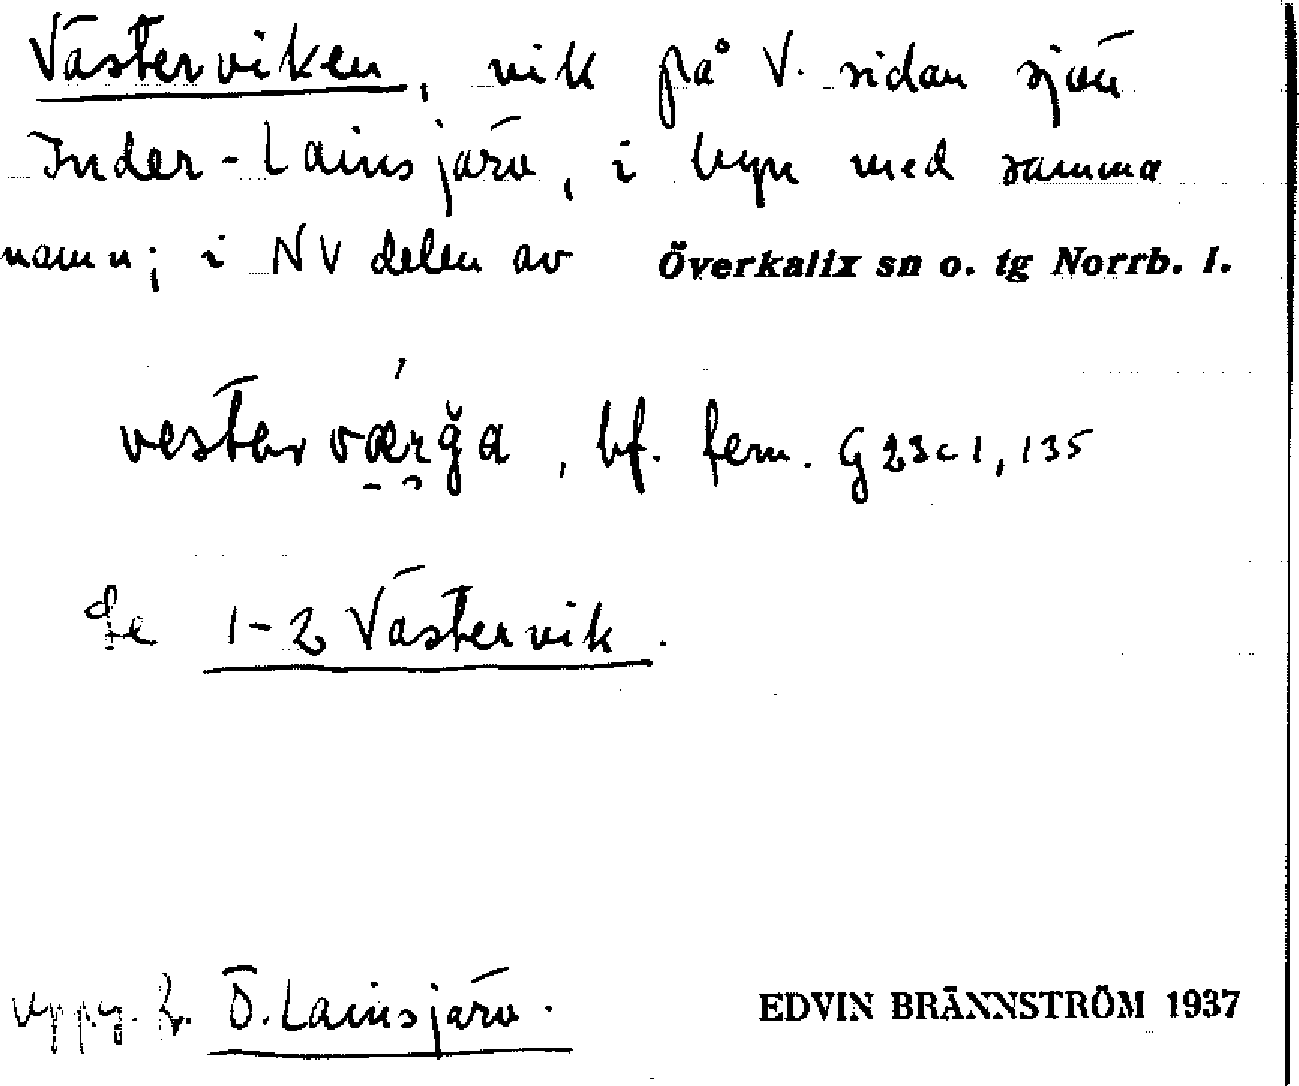 Västerviken, vik på V. sidan sjön
Inder-Lainsjärv, i byn med samma
namn; i NV delen av Överkalix sn o. tg Norrb. l.
vestərværğa, bf. fem. G 23c1, 135
Se 1-2 Västervik.
uppg. fr. Ö. Lainsjärv.
EDVIN BRÄNNSTRÖM 1937